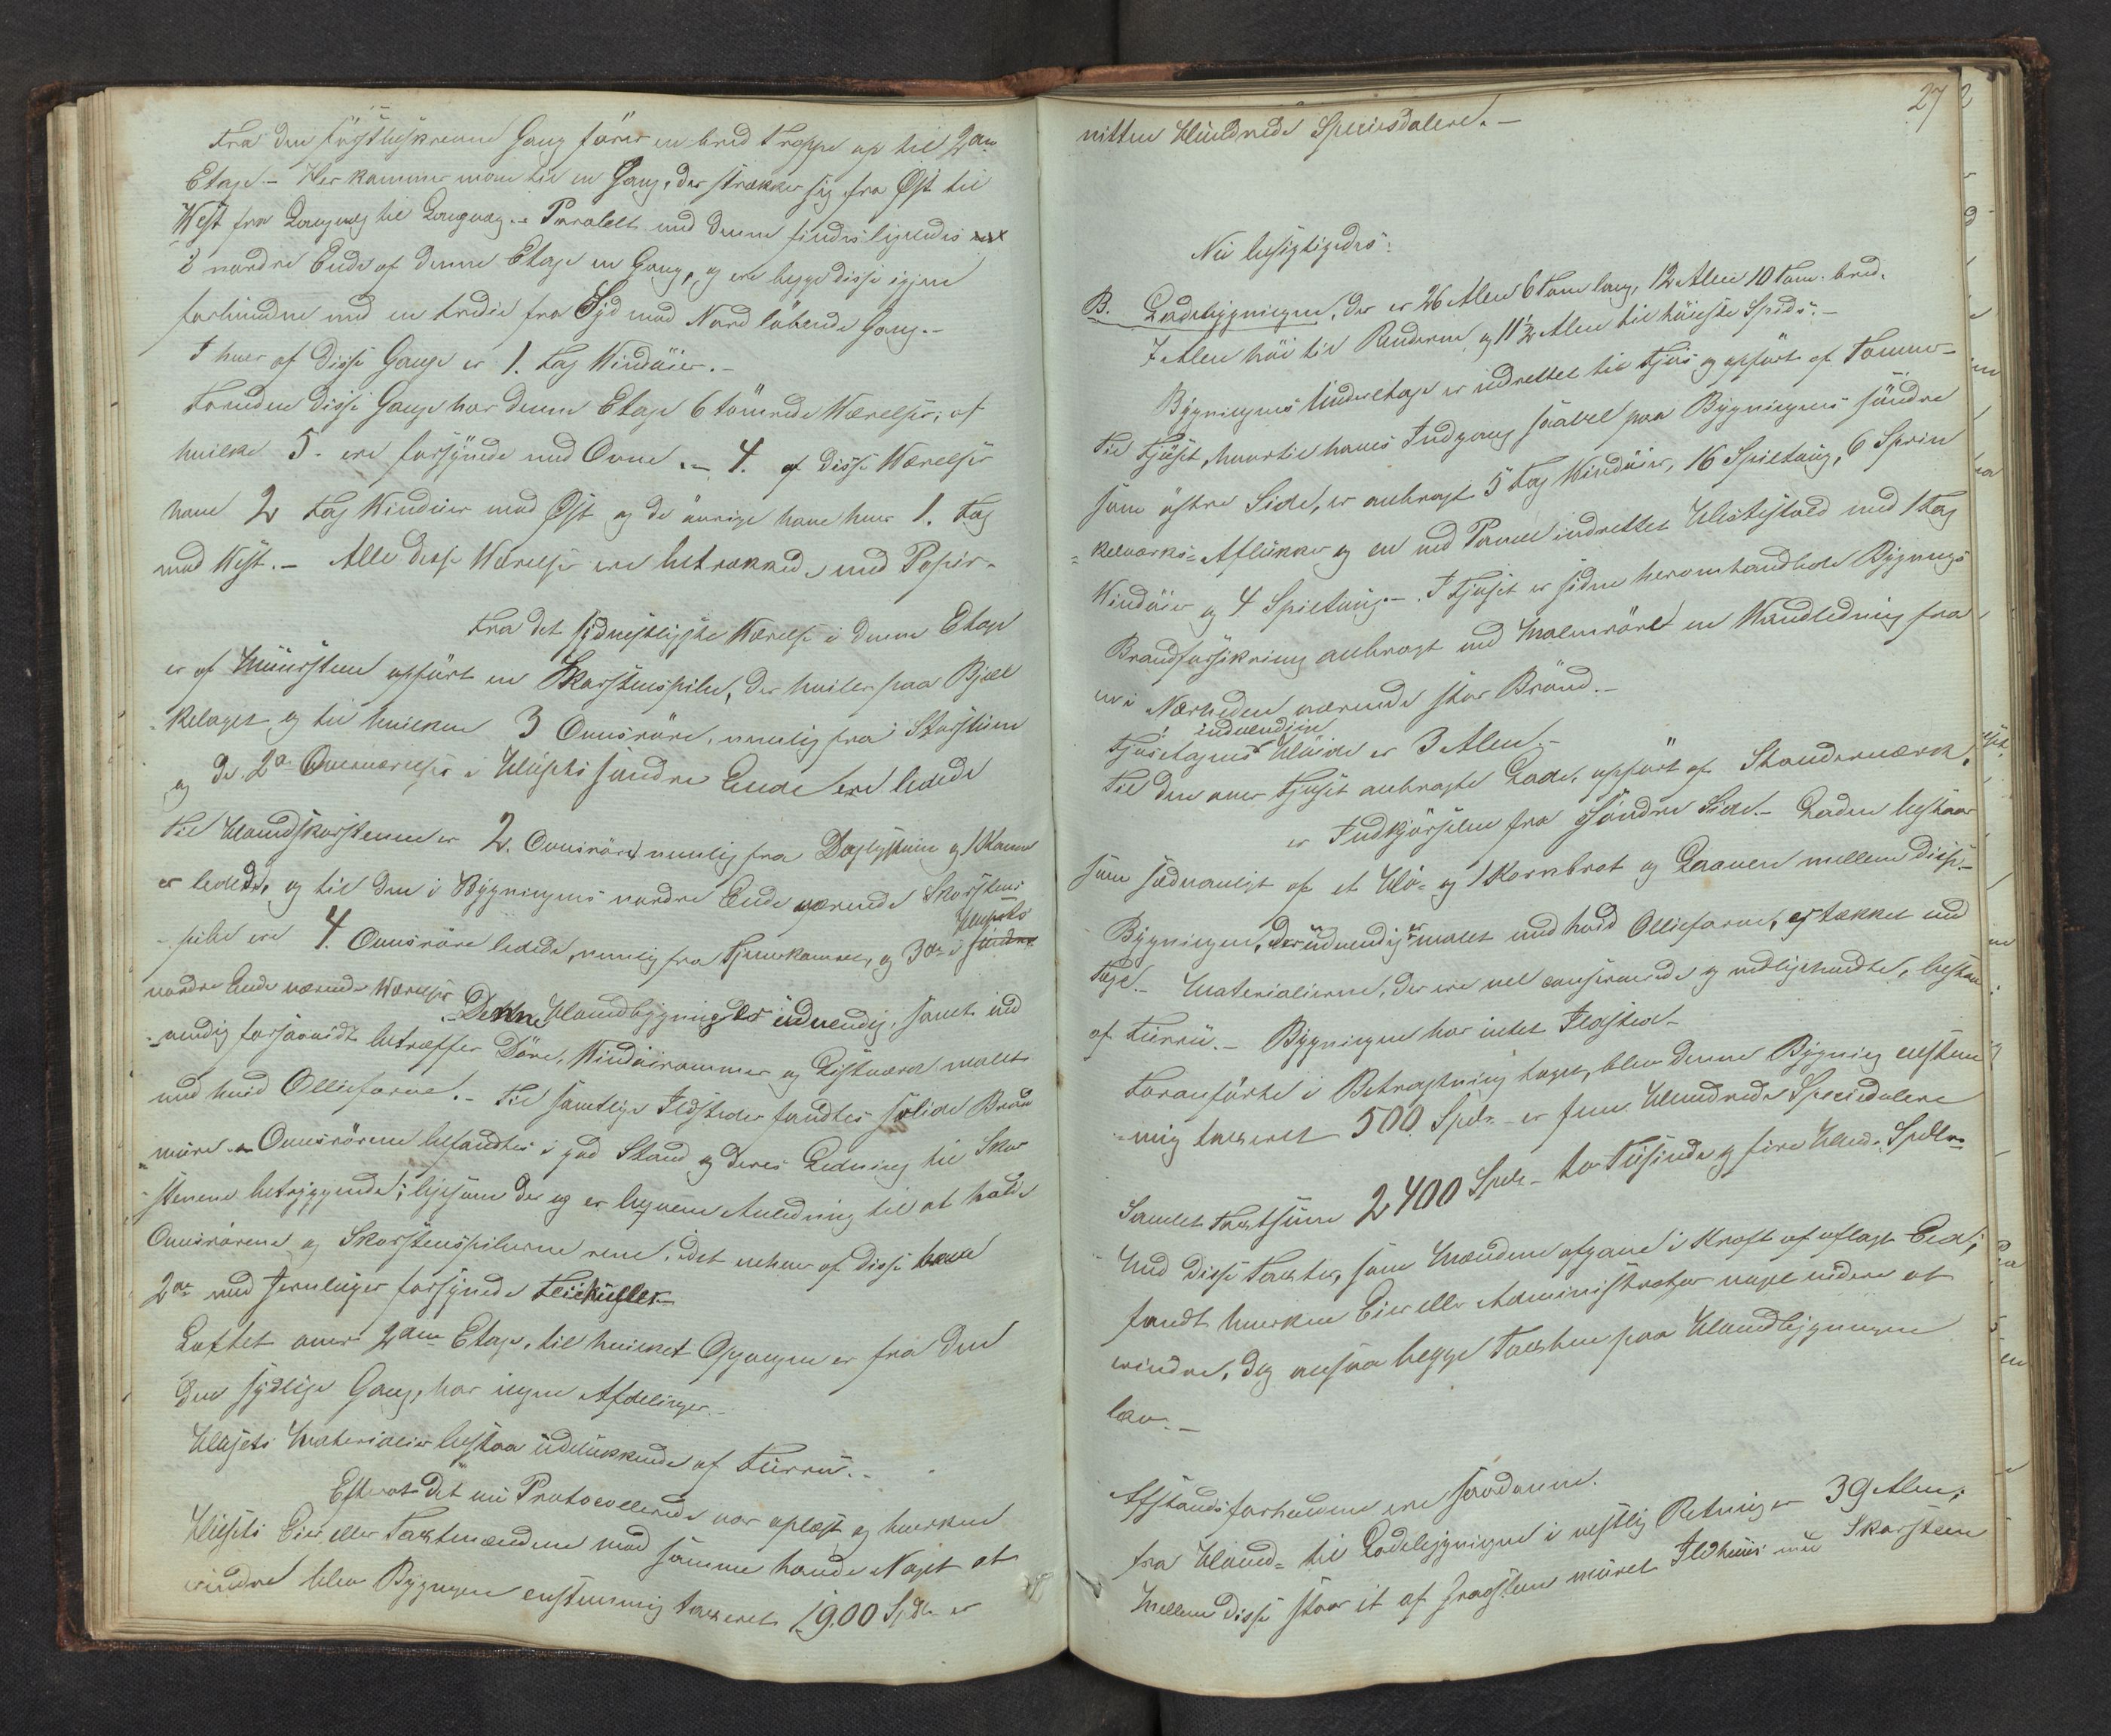 Fra den förstbeskrevne Gang förer en bred Trappe op til 2den
Etage. – Her kommer man til en Gang, der strækker sig fra Øst til
West fra Langvæg til Langvæg. – Paralelt med denne findes ligeledes
i nordre Ende af denne Etage en Gang, og ere begge disse igjen
forbundne med en tredie fra Syd mod Nord löbende Gang. –
I hver af disse Gange er 1. Fag Vinduer. –
Foruden disse Gange har denne Etage 6 tömrede Værelser, af
hvilke 5. ere forsynede med Ovne. – 4. af disse Værelser
have 2 Fag Vinduer mod Øst og de övrige have hver 1. Fag
mod West. – Alle disse Værelser ere betrækkede med Papir. –
Fra det sydvestligste Værelse i denne Etage
er af Muursteen opfört en Skorstenspibe, der hviler paa Bjæl
kelaget og til hvilken 3 Ovnsröre, nemlig fra Storstuen
og de 2de Oververelser i Husets söndre Ende ere ledede
Til Hovedskorstenen er 2. Ovnsröre nemlig fra Dagligstuen og 1 Kammer
er ledede, og til den i Bygningens nordre Ende værende Skorstens
pibe ere 4. Ovnsröre ledede, nemlig fra Pigekammer, og 3de i Husets
nordre Ende værende Værelser. Denne Hovedbygning er udvendig, samt ind
vendig forsaavidt betræffer Döre, Vinduirammer og Listværk malet
med hvid Olliefarve. – Til samtlige Ildsteder fandtes solide Brand
mure. – Ovnsrörene befandtes i god Stand og deres Ledning til Skor
stenene betryggende; ligesom der og er beqvem Anledning til at holde
Ovnsrörene og Skorstenspiberne rene, idet enhver af disse have
2de med Jernluger forsynede Feiehuller
Loftet over 2den Etage, til hvilket Opgangen er fra den
den sydlige Gang, har ingen Afdelinger. –
Husets Materialier bestaa udelukkende af Furru. –
Efterat det nu Protocollerede var oplæst og hverken
Husets Eier eller Taxtmændene mod samme havde Noget at
erindre blev Bygningen enstemmig taxeret 1900 Spdlr er
27
nitten Hundrede Speciesdalere. –
Nu besigtigedes:
B. Ladebygningen, der er 26 Alen 6 Tom lang, 12 Alen 10 Tom. bred,
7 Alen höi til Renderne og 11½ Alen til höieste Spids. –
Bygningens Underetage er indrettet til Fjös og opfört af Tömmer
Til Fjöset, hvortil haves Indgang saavel paa Bygningens söndre
som östre Side, er anbragt 5 Fag Vinduer, 16 Spiltoug, 6 Sprin
kelværks-Aflukker og en med Panel indrettet Hestestald med 1 Fag
Vinduer og 4 Spiltoug. – I Fjöset er siden heromhandlede Bygnings
Brandforsikring anbragt med Malmröre en Vandledning fra
en i Nærheden værende stor Brönd. –
indvendige
Fjösetagens Höide er 3 Alen –
Til den over Fjöset anbragte Lade, opfört af Stænderværk,
er Indkjörselen fra söndre Side. – Laden bestaar
som sædvanligt af et Hö- og 1 Kornbrot og Laaven mellem disse. –
Bygningen, der udvendig er malet med hvid Olliefarve, er tækket med
Tagst. – Materialierne, der ere vel conserverede og vedligeholdte, bestaa
af Furru. – Bygningen har intet Ildsted –
Foranförte i Betragtning taget, blev denne Bygning enstem
mig taxeret 500 Spdlr – er fem Hundrede Speciedalere
Samlet Taxtsum 2,400 Spdlr – to Tusinde og fire Hund. Spdlr
Med disse Taxter, som Mændene afgave i Kraft af aflagt Eed;
fandt hverken Eier eller Administrator noget videre at
erindre, dog ansaa begge Taxten paa Hovedbygningen
lav. –
Afstandsforholdene ere saadanne.
fra Hoved- til Ladebygningen i vestlig Retning er 39 Alen;
Mellem disse staar et af Graasteen muret Ildhuus med Skorsteen